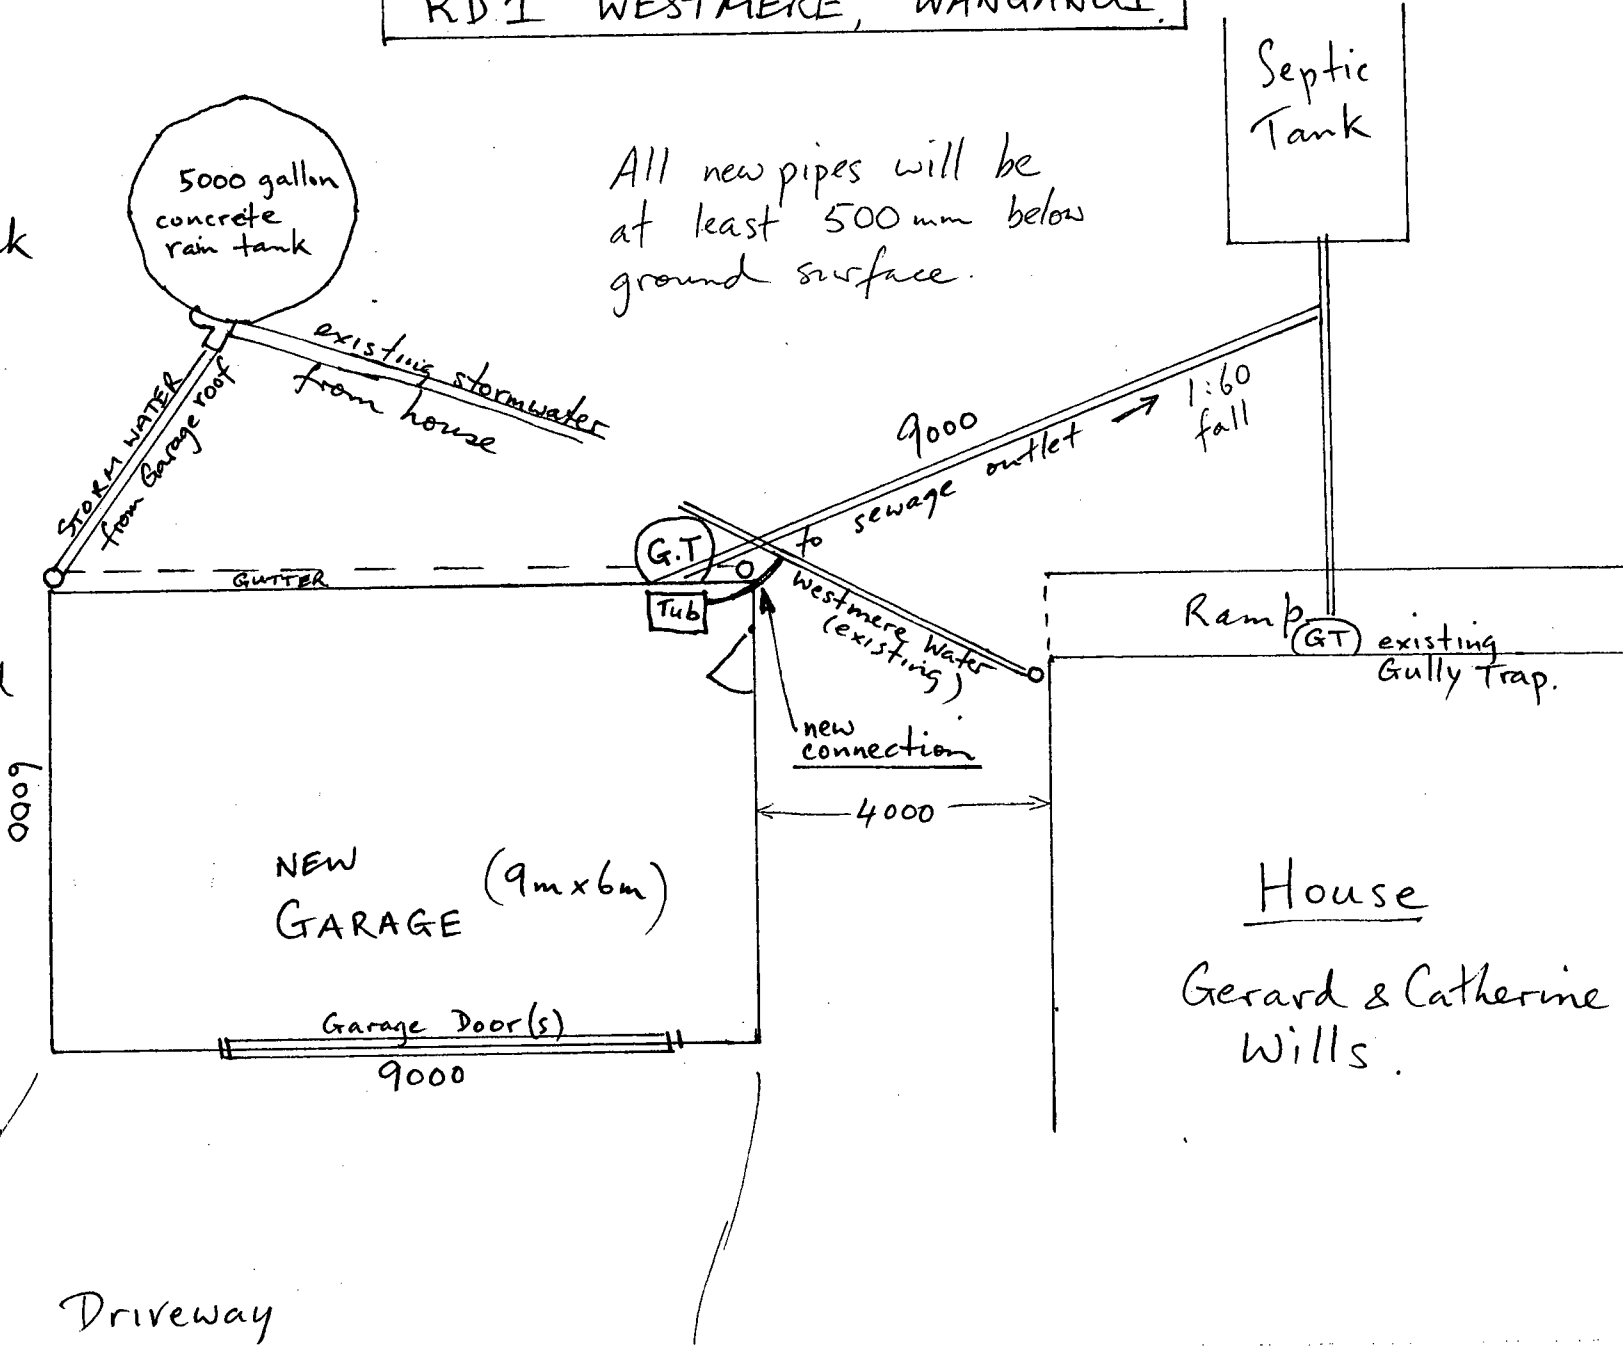 RD1 WESTMERE, WANGANUI.
Septic
Tank
5000 gallon
concrete
rain tank
k
All new pipes will be
at least 500mm below
ground surface.
existing stormwater
from house
STORM WATER
from Garage roof
9000
sewage outlet
1:60
fall
G.T
to
GUTTER
Tub
Westmere Water
(existing)
Ramp
GT
existing
Gully Trap.
new
connection
6000
4000
NEW
GARAGE
(9m x 6m)
House
Gerard & Catherine
Wills.
Garage Door(s)
9000
Driveway